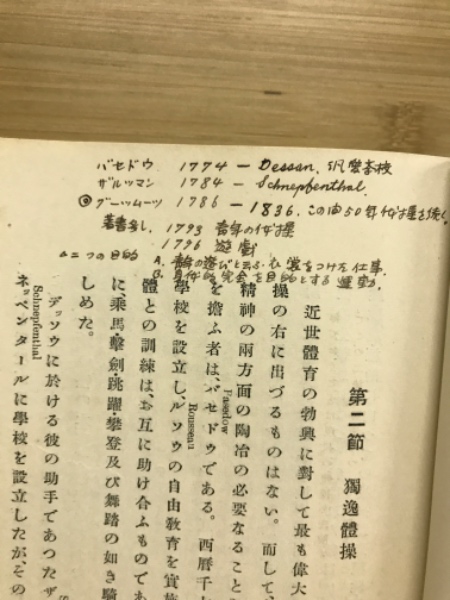 バセドウ 1774 — Dessau. 汎愛学校
ザルツマン 1784 — Schnepfenthal.
◎グーツムーツ 1786 — 1836. この間50年体操を
著書多し. 1793 青年の体操
1796 遊戯
二つの目的 A. 青年の遊びと云ふ衣裳をつけた仕事.
B. 自体的完全を目的とする運動.
第二節 獨逸體操
近世體育の勃興に對して最も偉大
操の右に出づるものはない。而して、
精神の兩方面の陶冶の必要なること
を擔ふ者は、バセドウである。西曆千
Basedow
學校を設立し、ルソウの自由敎育を實施
Rousseau
體との訓練は、お互に助け合ふものであ
に乘馬・擊劍・跳躍・攀登及び舞踏の如き騎
しめた。
デッソウに於ける彼の助手であつたザ
Schnepfenthal
ネッペンタールに學校を設立したが、その